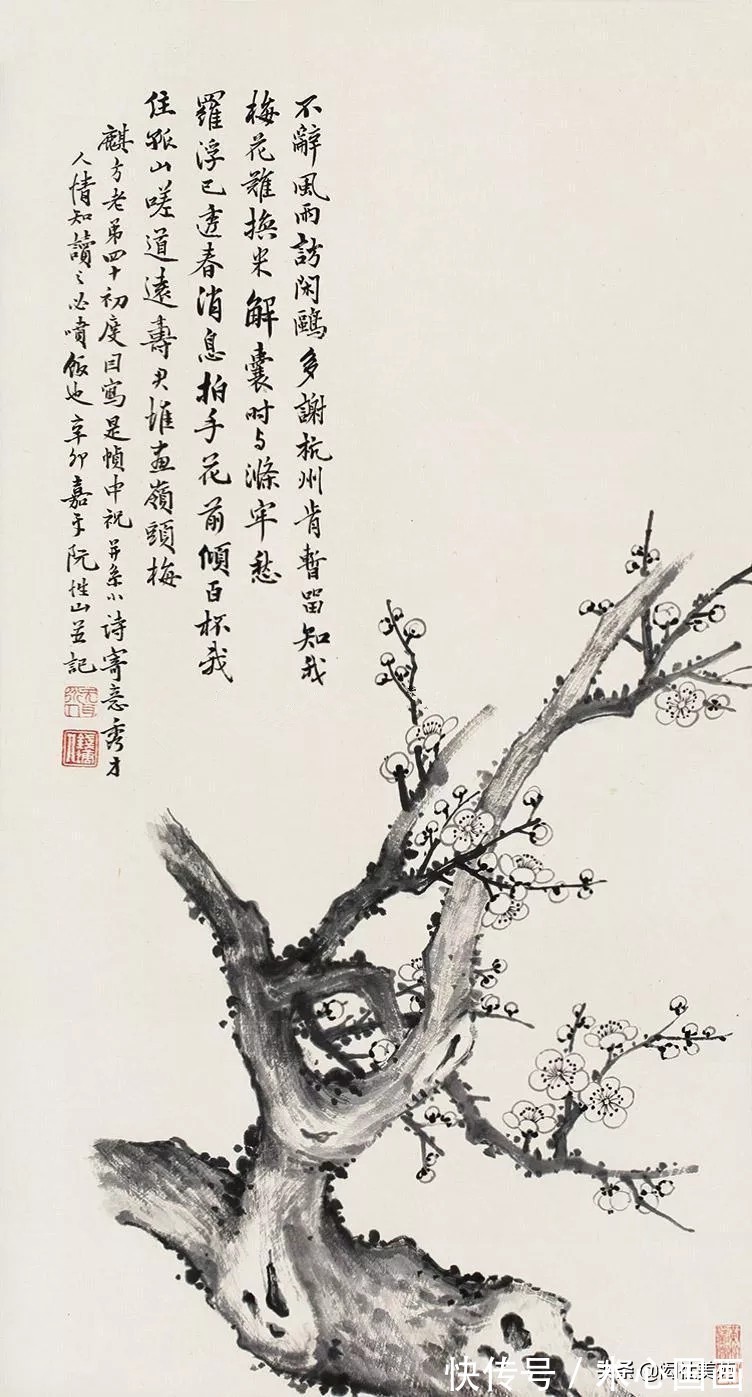 不辭風雨訪閑鷗多謝杭州肯暫留知我
梅花難換米解囊时与滌牢愁
羅浮已透春消息拍手花前傾百杯我
住孤山嗟道遠壽君惟畫嶺頭梅
麒方老弟四十初度曰寫是幀申祝并系小诗寄意秀才
人情知讀之必噴飯也辛卯嘉平阮性山並記
快传号/
头条@